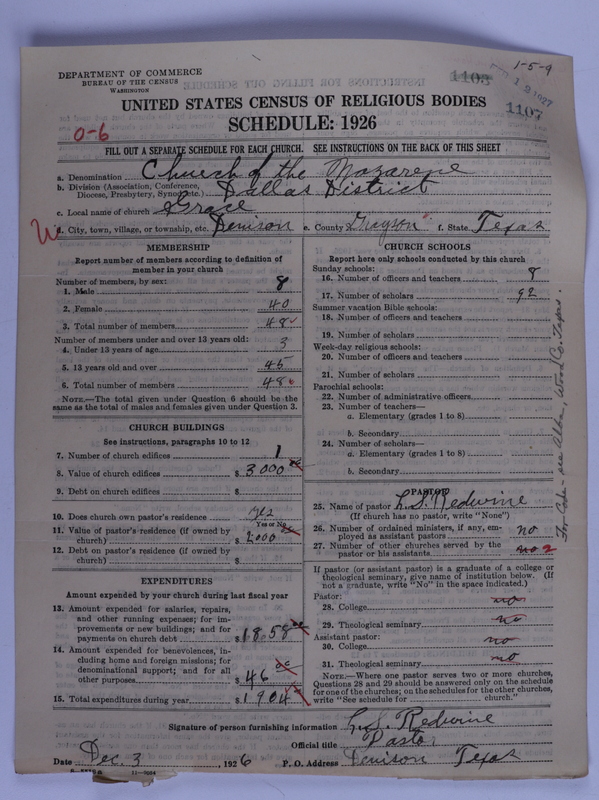 1-5-9
DEPARTMENT OF COMMERCE
BUREAU OF THE CENSUS
WASHINGTON
1103
1107
UNITED STATES CENSUS OF RELIGIOUS BODIES
SCHEDULE: 1926
0-6
FILL OUT A SEPARATE SCHEDULE FOR EACH CHURCH. SEE INSTRUCTIONS ON THE BACK OF THIS SHEET
a. Denomination Church of the Nazarene
b. Division (Association, Conference, Diocese, Presbytery, Synod, etc.) Dallas District
c. Local name of church Grace
d. City, town, village, or township, etc. Denison e. County Grayson f. State Texas
MEMBERSHIP
Report number of members according to definition of
member in your church
Number of members, by sex:
1. Male 8
2. Female 40
3. Total number of members 48
Number of members under and over 13 years old:
4. Under 13 years of age 3
5. 13 years old and over 45
6. Total number of members 48
NOTE.—The total given under Question 6 should be the
same as the total of males and females given under Question 3.
CHURCH BUILDINGS
See instructions, paragraphs 10 to 12
7. Number of church edifices 1
8. Value of church edifices $ 3000
9. Debt on church edifices $
10. Does church own pastor's residence yes
Yes or No
11. Value of pastor's residence (if owned by
church) $ 2000
12. Debt on pastor's residence (if owned by
church) $
EXPENDITURES
Amount expended by your church during last fiscal year
13. Amount expended for salaries, repairs,
and other running expenses; for im-
provements or new buildings; and for
payments on church debt $ 1858
14. Amount expended for benevolences, in-
cluding home and foreign missions; for
denominational support; and for all
other purposes $ 46
15. Total expenditures during year $ 1904
CHURCH SCHOOLS
Report here only schools conducted by this church
Sunday schools:
16. Number of officers and teachers 8
17. Number of scholars 92
Summer vacation Bible schools:
18. Number of officers and teachers
19. Number of scholars
Week-day religious schools:
20. Number of officers and teachers
21. Number of scholars
Parochial schools:
22. Number of administrative officers
23. Number of teachers—
a. Elementary (grades 1 to 8)
b. Secondary
24. Number of scholars—
a. Elementary (grades 1 to 8)
b. Secondary
PASTOR
25. Name of pastor L. S. Redwine
(If church has no pastor, write "None")
26. Number of ordained ministers, if any, em-
ployed as assistant pastors no
27. Number of other churches served by the
pastor or his assistants no 2
If pastor (or assistant pastor) is a graduate of a college or
theological seminary, give name of institution below. (If
not a graduate, write "No" in the space indicated.)
Pastor:
28. College no
29. Theological seminary no
Assistant pastor:
30. College no
31. Theological seminary no
NOTE.—Where one pastor serves two or more churches,
Questions 28 and 29 should be answered only on the schedule
for one of the churches; on the schedules for the other churches,
write "See schedule for church."
Signature of person furnishing information L. S. Redwine
Official title Pastor
Date Dec. 3, 1926 P. O. Address Denison Texas
11-9264